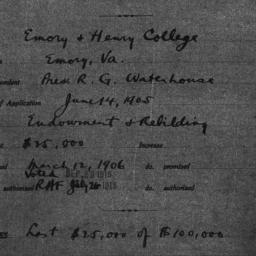 Emory & Henry College
Emory, Va.
Pres. R. G. Waterhouse
of Application June 14, 1905
Endowment & Rebilding
$25,000 Increase
March 12, 1906 do. promised
Voted SEP 1915
authorized RAF July 26 1915 do. authorized
Last $25,000 of $100,000